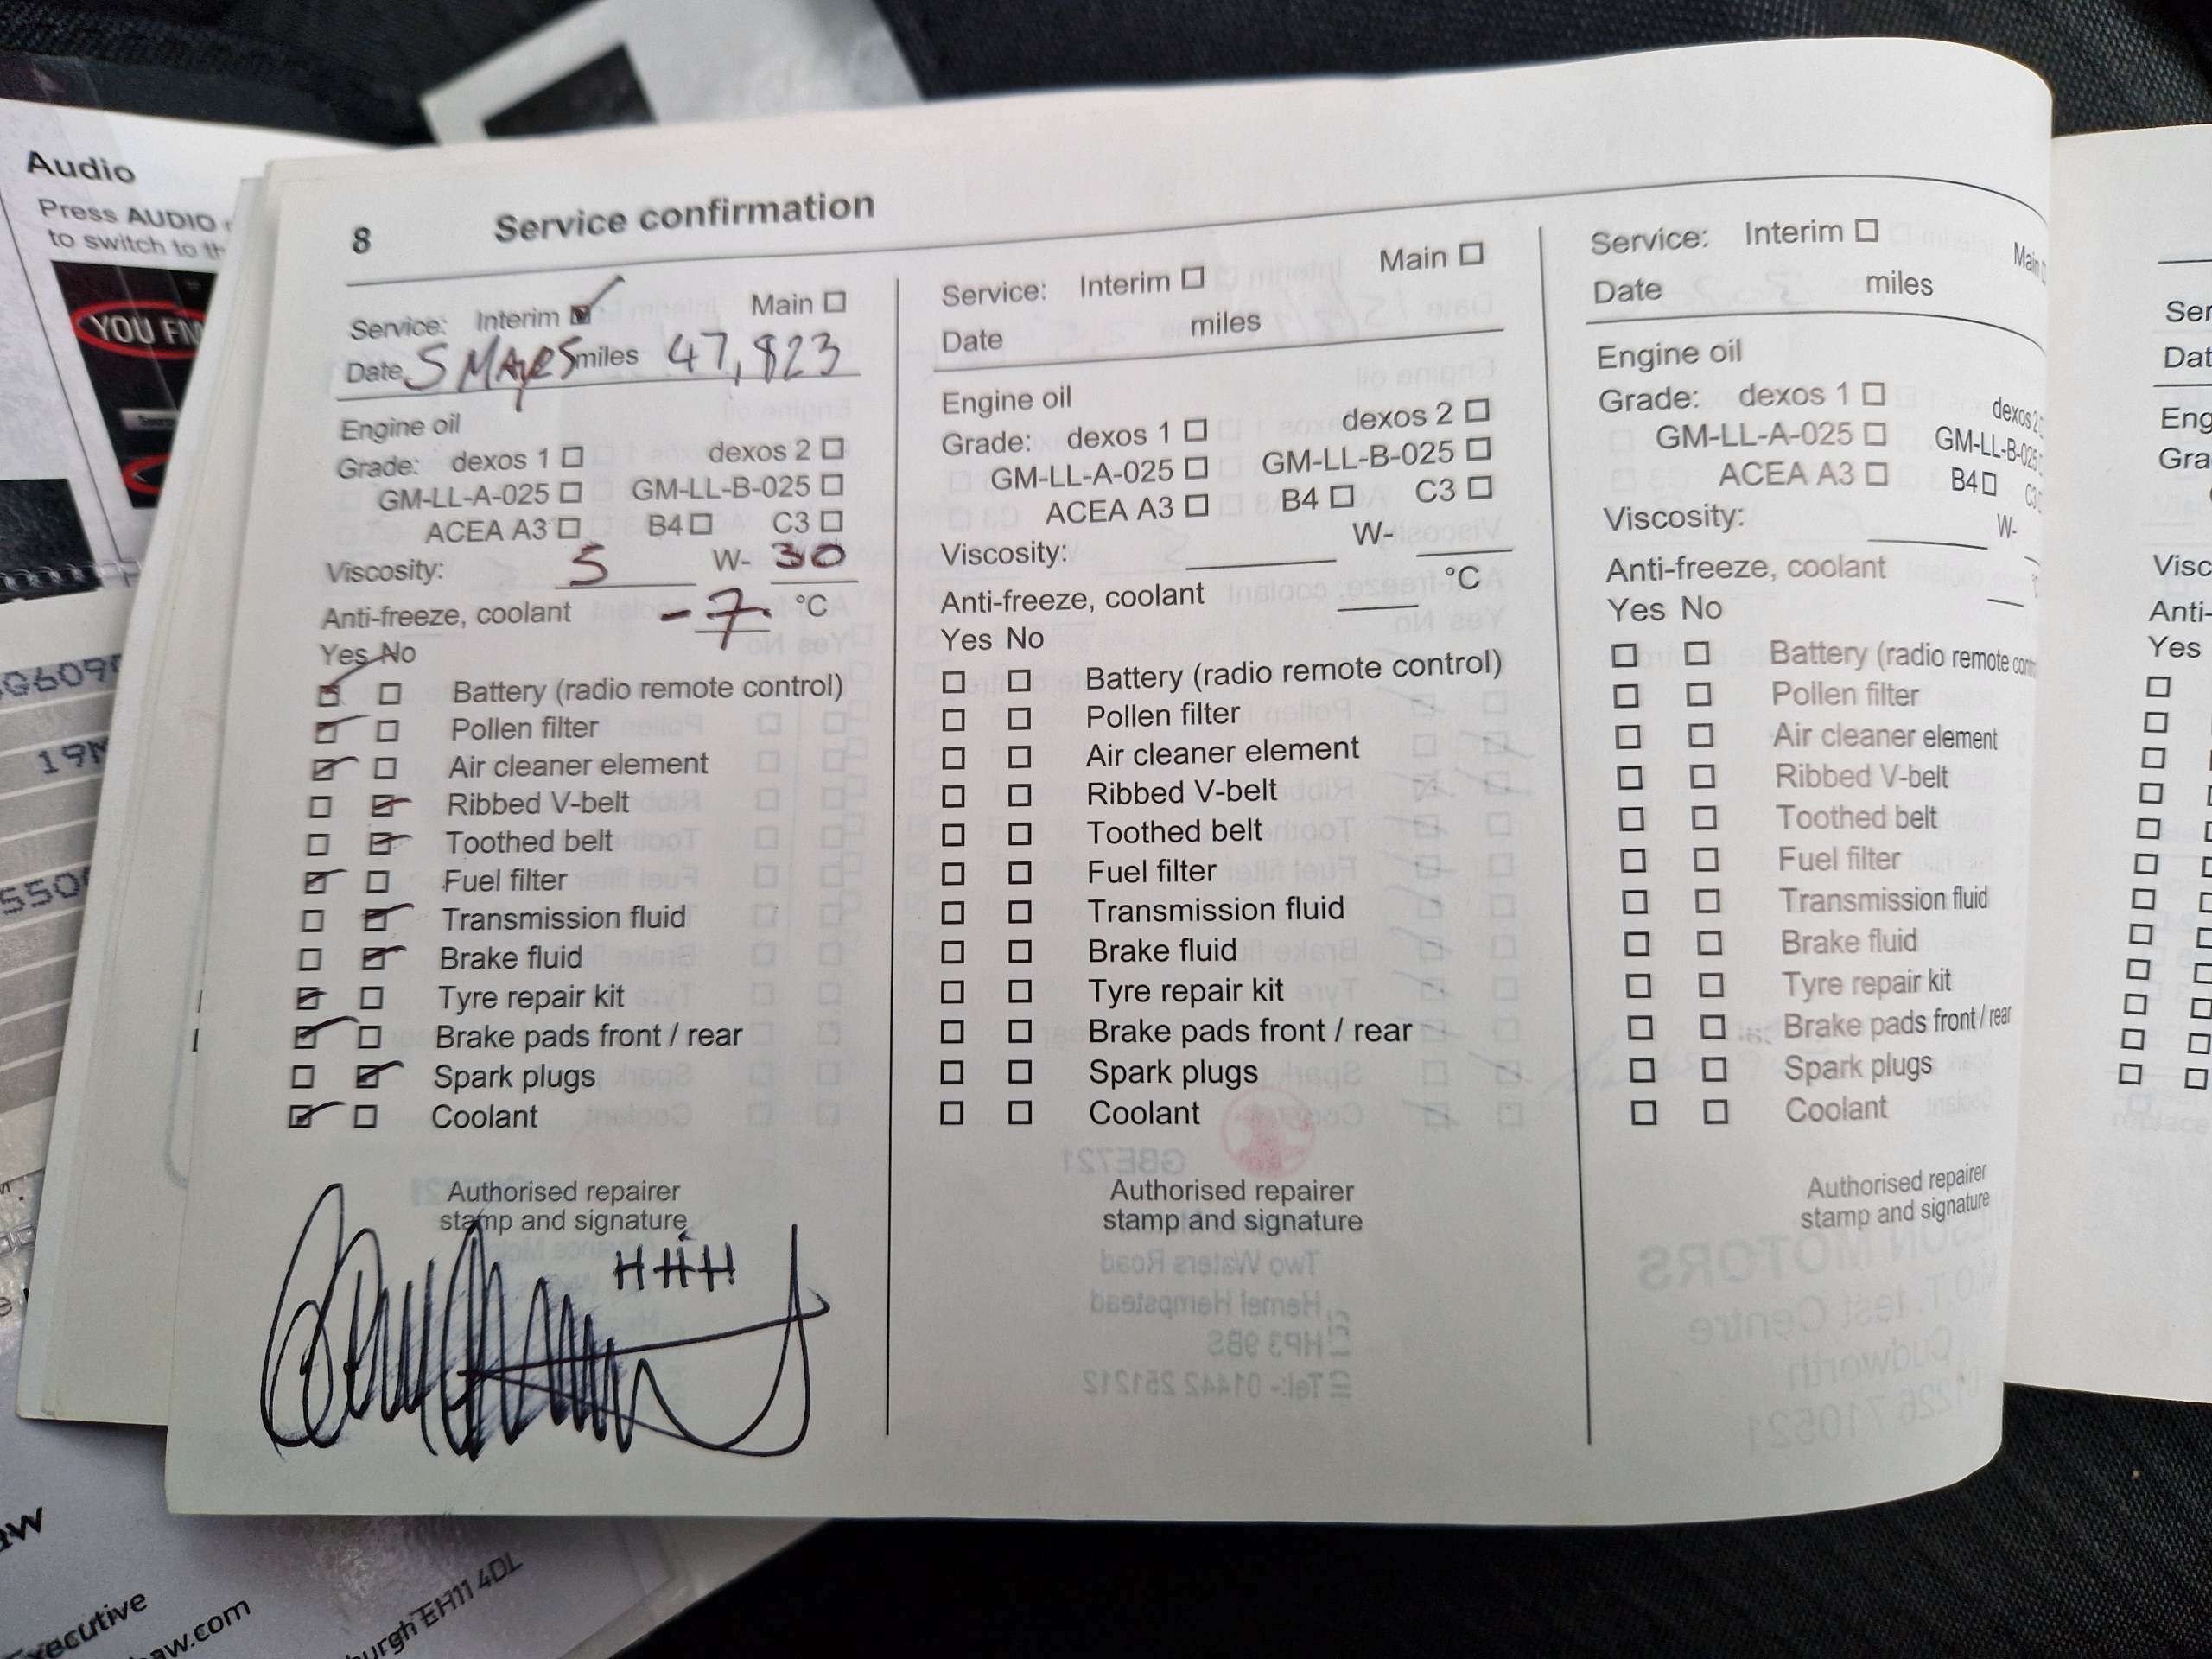 Audio
Press AUDIO
to switch to th
YOU FM
8 Service confirmation
Service: Interim ☑ Main ☐
Date 5 MAY 25 miles 47,823
Engine oil
Grade: dexos 1 ☐ dexos 2 ☐
GM-LL-A-025 ☐ GM-LL-B-025 ☐
ACEA A3 ☐ B4 ☐ C3 ☐
Viscosity: 5 W- 30
Anti-freeze, coolant -7 °C
Yes No
☑ ☐ Battery (radio remote control)
☑ ☐ Pollen filter
☑ ☐ Air cleaner element
☐ ☑ Ribbed V-belt
☐ ☑ Toothed belt
☑ ☐ Fuel filter
☐ ☑ Transmission fluid
☐ ☑ Brake fluid
☑ ☐ Tyre repair kit
☑ ☐ Brake pads front / rear
☐ ☑ Spark plugs
☑ ☐ Coolant
Authorised repairer
stamp and signature
Service: Interim ☐ Main ☐
Date miles
Engine oil
Grade: dexos 1 ☐ dexos 2 ☐
GM-LL-A-025 ☐ GM-LL-B-025 ☐
ACEA A3 ☐ B4 ☐ C3 ☐
Viscosity: W-
Anti-freeze, coolant °C
Yes No
☐ ☐ Battery (radio remote control)
☐ ☐ Pollen filter
☐ ☐ Air cleaner element
☐ ☐ Ribbed V-belt
☐ ☐ Toothed belt
☐ ☐ Fuel filter
☐ ☐ Transmission fluid
☐ ☐ Brake fluid
☐ ☐ Tyre repair kit
☐ ☐ Brake pads front / rear
☐ ☐ Spark plugs
☐ ☐ Coolant
Authorised repairer
stamp and signature
GBE721
Two Waters Road
Hemel Hempstead
HP3 9BS
Tel:- 01442 251212
Service: Interim ☐ Main ☐
Date miles
Engine oil
Grade: dexos 1 ☐ dexos 2 ☐
GM-LL-A-025 ☐ GM-LL-B-025 ☐
ACEA A3 ☐ B4 ☐ C3 ☐
Viscosity: W-
Anti-freeze, coolant
Yes No
☐ ☐ Battery (radio remote cont
☐ ☐ Pollen filter
☐ ☐ Air cleaner element
☐ ☐ Ribbed V-belt
☐ ☐ Toothed belt
☐ ☐ Fuel filter
☐ ☐ Transmission fluid
☐ ☐ Brake fluid
☐ ☐ Tyre repair kit
☐ ☐ Brake pads front / rear
☐ ☐ Spark plugs
☐ ☐ Coolant
Authorised repairer
stamp and signature
SON MOTORS
M.O.T. Test Centre
Cudworth
01226 710521
Ser
Dat
Eng
Gra
Visc
Anti-
Yes
G609
19M
550
aw
xecutive
haw.com
burgh EH11 4DL